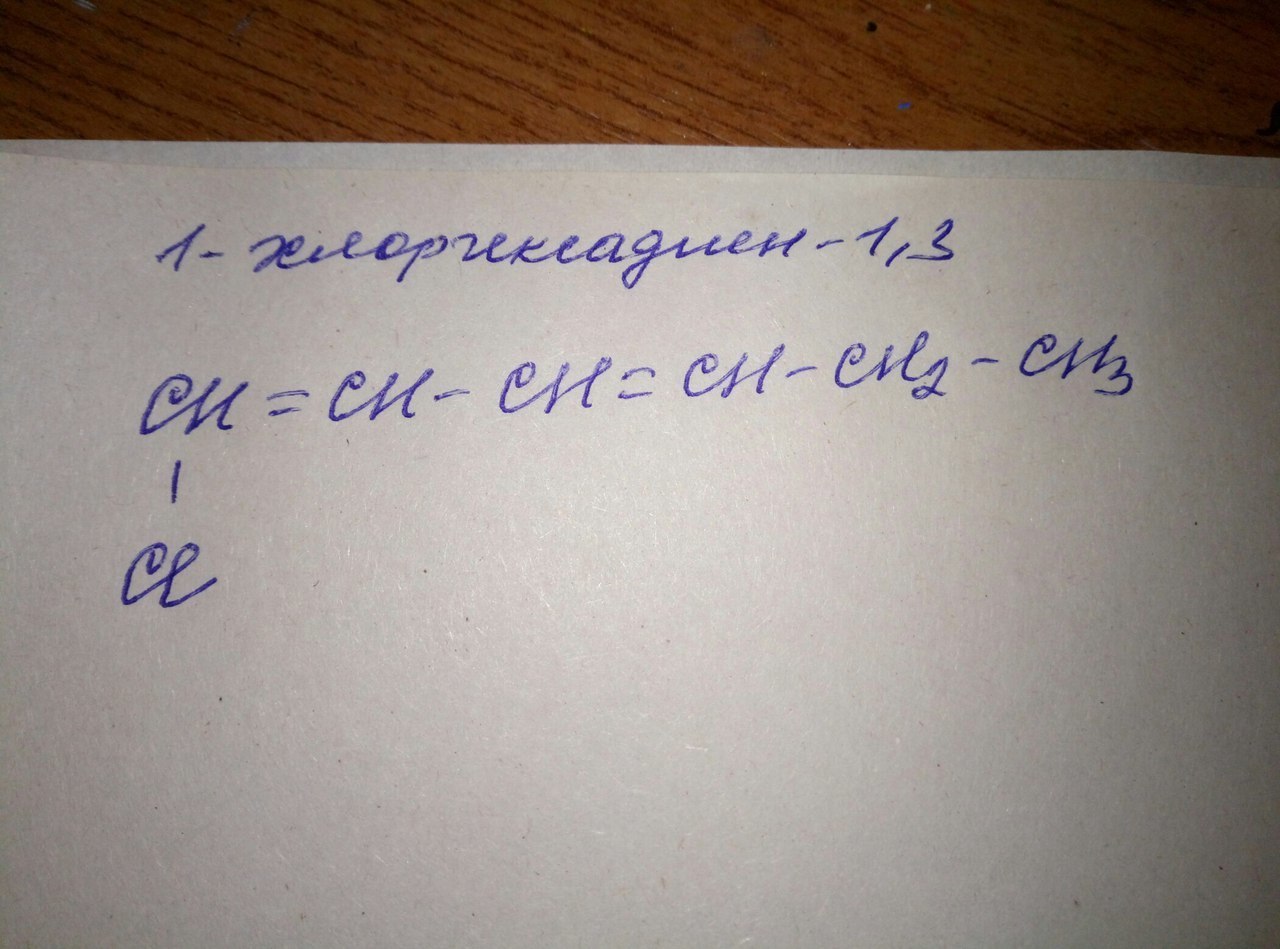 1-хлоргексадиен-1,3
CH=CH-CH=CH-CH2-CH3
|
Cl